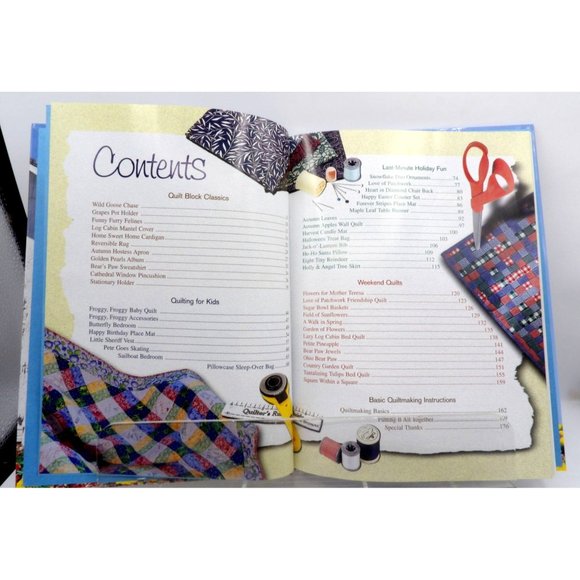 Contents
Quilt Block Classics
Wild Goose Chase
Grapes Pot Holder
Funny Furry Felines
Log Cabin Mantel Cover
Home Sweet Home Cardigan
Reversible Rug
Autumn Hostess Apron
Golden Pearls Album
Cathedral Window Pincushion
Bear's Paw Sweatshirt
Stationary Holder
Quilting for Kids
Froggy, Froggy Baby Quilt
Froggy, Froggy Accessories
Butterfly Bedroom
Happy Birthday Place Mat
Little Sheriff Vest
Pete Goes Skating
Sailboat Bedroom
Pillowcase Sleep-Over Bag
Quilter's
Last Minute Holiday Fun
Snowflake Duo Ornaments 74
Love of Patchwork 77
Heart in Diamond Chair Back 80
Happy Easter Counter Set 83
Forever Stripes Place Mat 86
Maple Leaf Table Runner 89
Autumn Leaves 92
Autumn Apples Wall Quilt 97
Harvest Candle Mat 100
Halloween Treat Bag 103
Jack-o'-Lantern Bib 106
Ho-Ho Santa Pillow 109
Eight Tiny Reindeer
Holly & Angel Tree Skirt 115
Weekend Quilts
Flowers for Mother Teresa 120
Love of Patchwork Friendship Quilt 123
Sugar Bowl Baskets 126
Field of Sunflowers
A Walk in Spring 132
Garden of Flowers 135
Lazy Log Cabin Bed Quilt 138
Petite Pineapple 141
Bear Paw Jewels 144
Ohio Bear Paw 147
Country Garden Quilt 151
Tantalizing Tulips Bed Quilt 155
Square Within a Square 159
Basic Quiltmaking Instructions
Quiltmaking Basics 162
Putting It All Together
Special Thanks 176